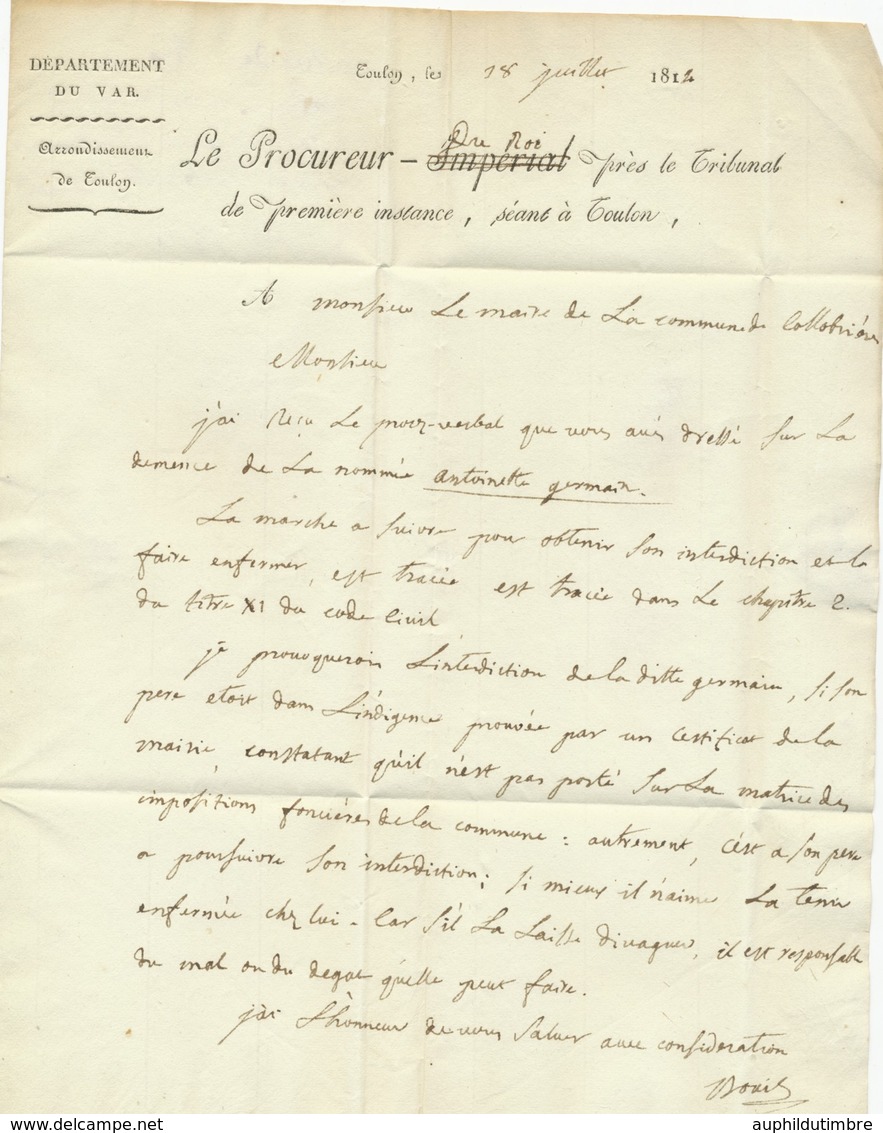 DÉPARTEMENT
DU VAR.
Arrondissement
de Toulon.
Toulon, le 18 juillet 1814
Du Roi
Le Procureur - Impérial près le Tribunal
de première instance, séant à Toulon,
A monsieur Le maire de La commune de Collobrières
Monsieur
j'ai Reçu Le procez-verbal que vous avés dressé sur La
demence de La nommée antoinette germain.
La marche a suivre pour obtenir son interdiction et la
faire enfermer, est tracée est tracée dans Le chapitre 2.
du titre XI du code Civil
je provoquerois L'interdiction de la ditte germain, si son
pere etoit dans L'indigence prouvée par un certificat de la
mairie, constatant qu'il n'est pas porté sur La matrice des
impositions foncières de la commune : autrement, c'est a son pere
a poursuivre son interdiction; si mieux il n'aime La tenir
enfermée chez lui - Car s'il La Laisse divaguer, il est responsable
du mal ou du degat qu'elle peut faire.
j'ai L'honneur de vous saluer avec consideration
auphildutimbre